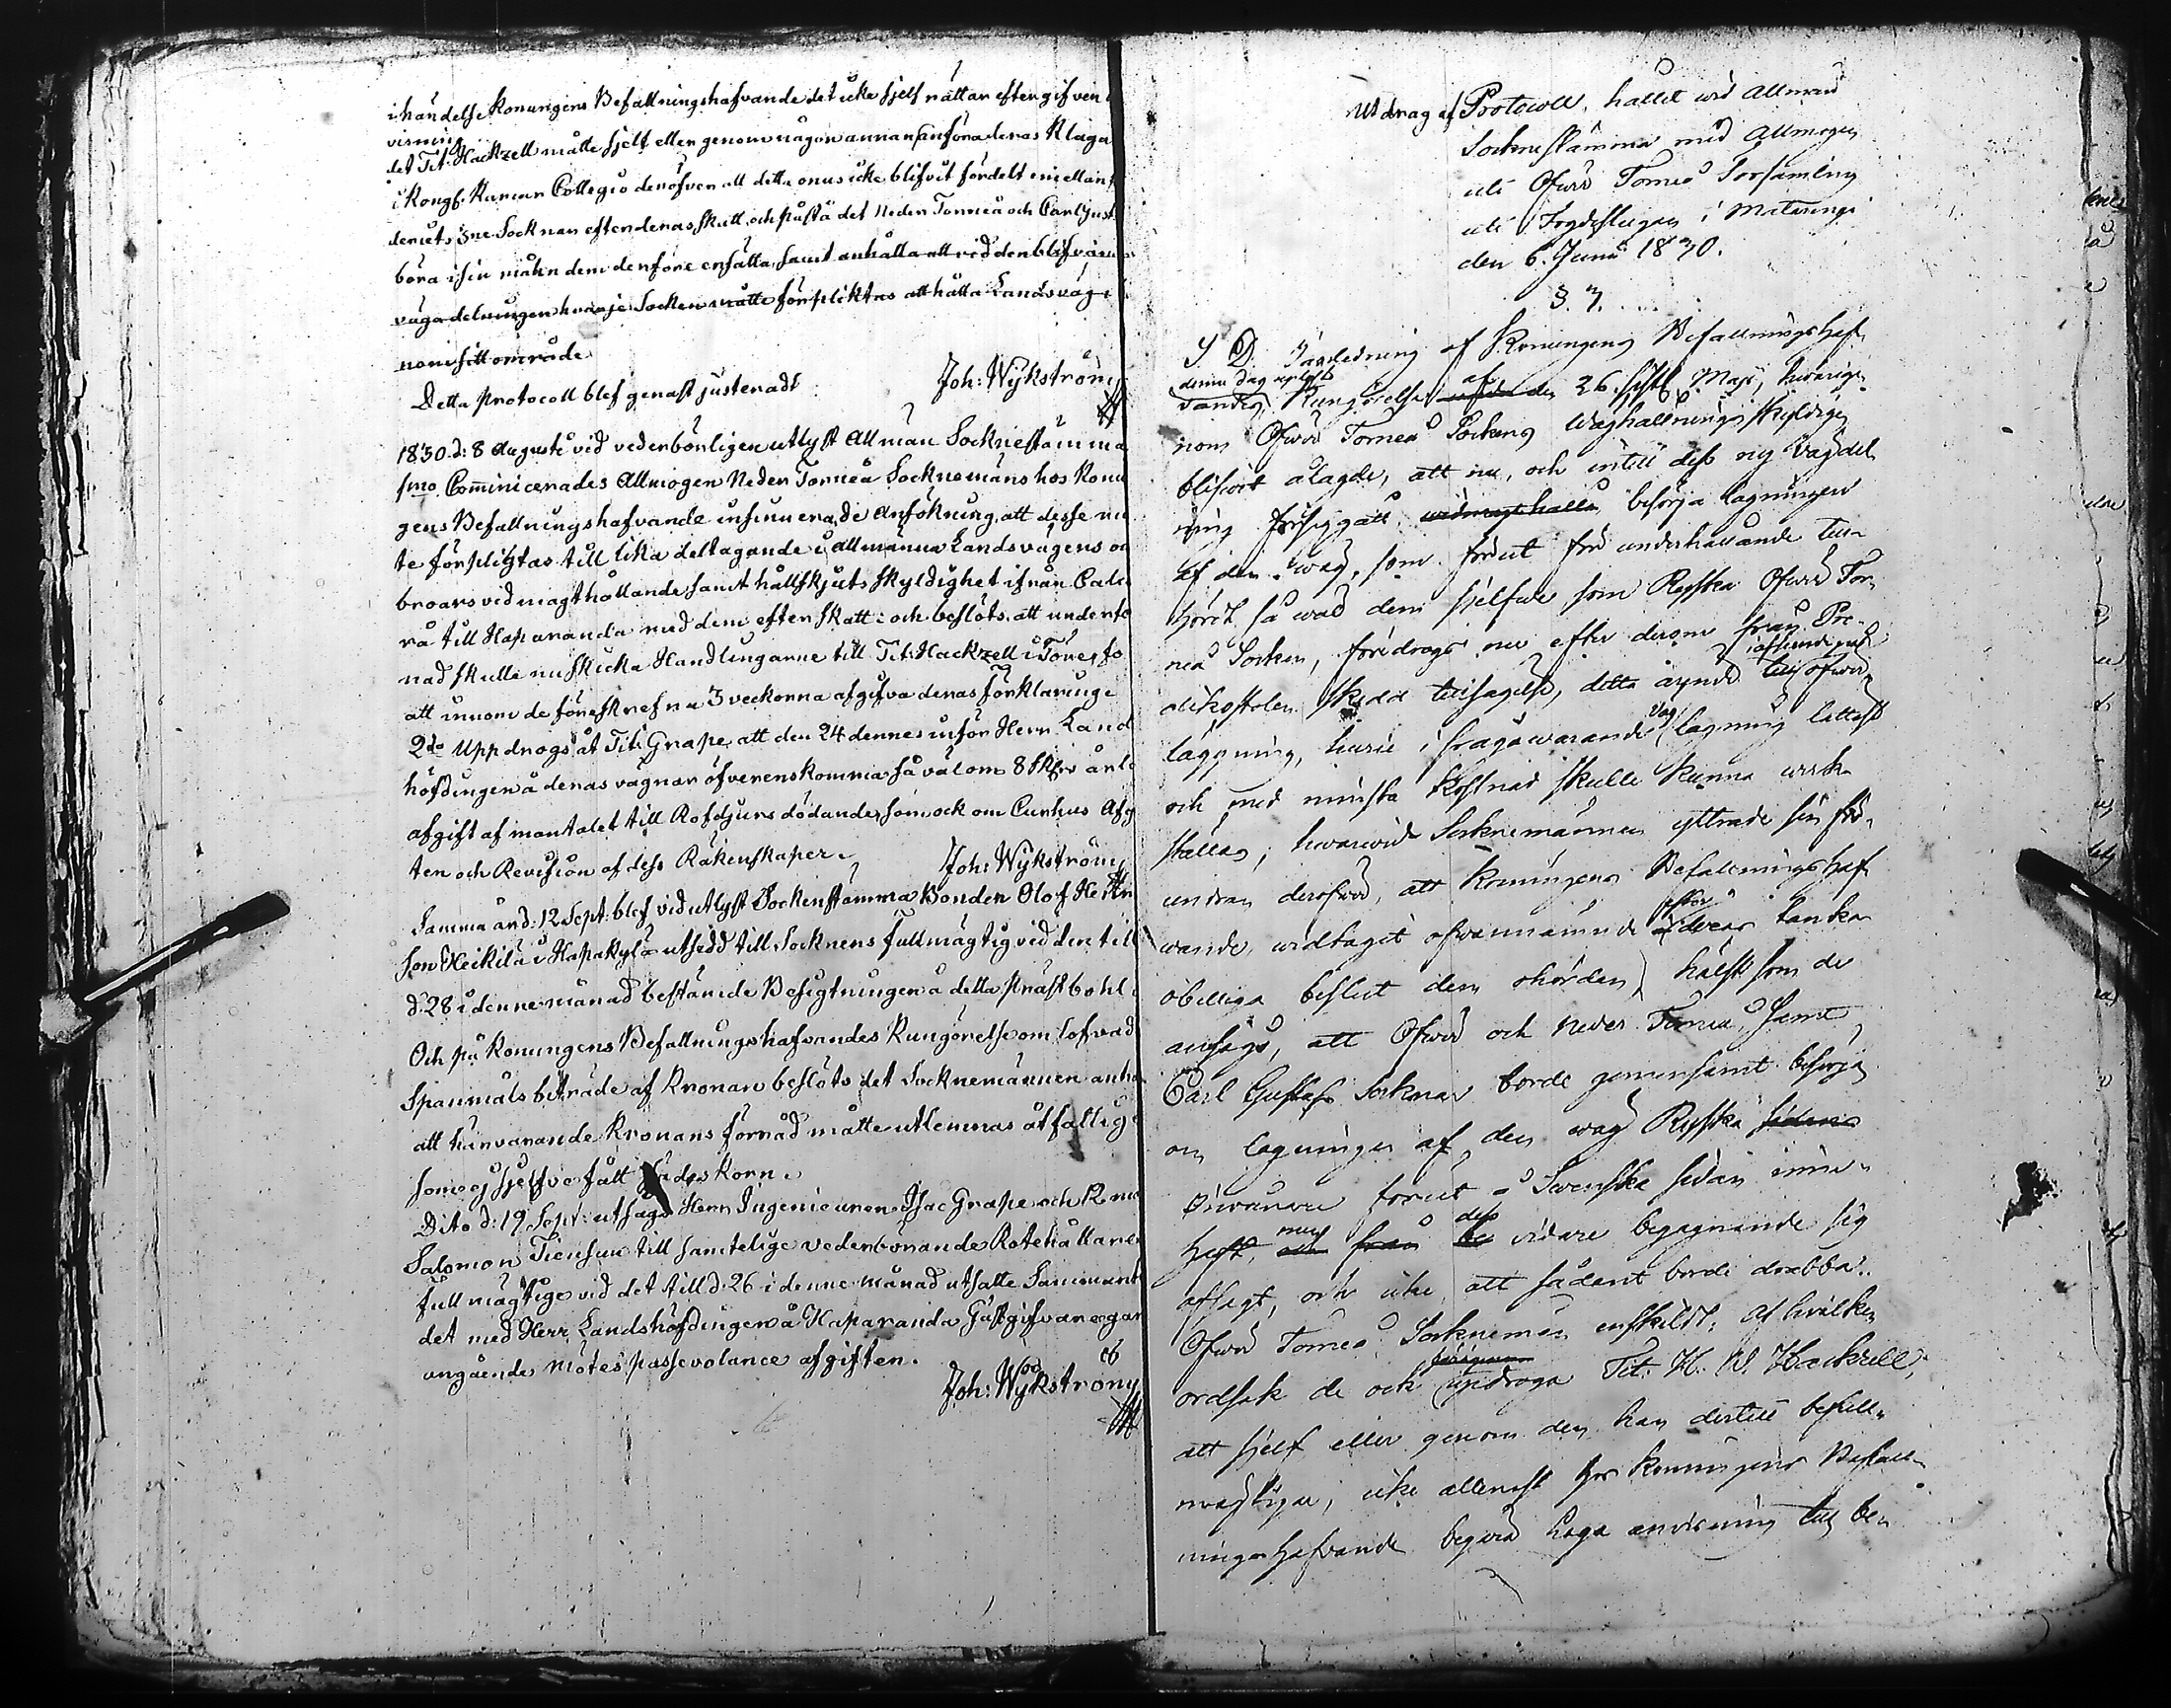 i händelse Konungens Befallningshafvande det icke sjelf rättar efter gifven
visning
det Tit: Hackzell måtte sjelf eller genom någon annan anföra deras Klaga
i Kongl. Kamar Collegio deröfver att detta onus icke blifvit fördelt emellan
deruti 3ne Socknar efter deras skatt, och påstå det Neder Torneå och Carl Gust
böra i sin mån dem derföre ersätta, samt anhålla att vid den blifvan
vägadelningen hvarje Socken måtte förpliktas att hålla Landsväg i
nom sitt område
Detta protocoll blef genast justeradt
Joh: Wijkström
1830 d: 8 Augusti vid vederbörligen utlyst Allmän Socknestämma
1mo Comminicerades Allmogen Neder Torneå Socknemäns hos Konu
gens Befallningshafvande insinuerade Ansökning, att desse må
te förpligtas till lika deltagande i Allmänna Landsvägens oc
broars vid magthållande samt hållskjuts skyldighet ifrån Calc
ra till Haparanda med dem efter skatt: och beslöts, att underte
nad skulle nu skicka Handlingarne till Tit: Hackzell i Töre, fö
att innom de föreskrefna 3 veckorna afgifva deras förklaringe
2do Uppdrogs åt Tit: Grape att den 24 dennes inför Herr Land
höfdingen å deras vägnar öfverenskomma så väl om 8 sk. årl
afgift af mantalet till Rofdjurs dödande, som ock om Curhus Afg
ten och Revision af dess Räkenskaper.
Joh: Wijkström
Samma år d: 12 Sept: blef vid utlyst Sockenstämma Bonden Olof Hen
son Heikilä i Hapakylä utsedd till Socknens fullmägtig vid den till
d: 28 i denne månad bestämde Besigtningen å detta prästbohl
Och på Konungens Befallningshafvandes Kungörelse om lofvad
Spanmåls biträde af Kronan beslöts det Socknemännen anh
att härvarande Kronans förråd måtte utlemnas åt fattige
som ej sjelfve fått Sädes korn.
Dito d: 19 Sept: utsågs Herr Ingenieuren Isac Grape och
Salomon Tiensuu till samtelige vederbörande Rotehållares
fullmägtige vid det till d. 26 i denne månad utsatte Sammant
det med Herr Landshöfdingen å Haparanda Gästgifvaregår
angående mötes passevolance afgiften.
Joh: Wijkström
Utdrag af Protocoll, hållit wid Allmän
Sockne stämma med Allmogen
uti Öfwer Torneå Församling
uti Fogdestugan i Mataringi
den 6. Junii 1830.
§ 7.
S. D. I anledning af Konungens Befallningshaf
denna dag upläst
vandes Kungörelse af den 26. sistl. Maji, hwarige
nom Öfwer Torneå Sockens Wäghållnings skyldige
blifwit ålagde, att nu, och intill dess ny Vägdel
ning försiggått, widmagthålla besörja lagningen
af den wäg, som förut för underhållande till
hört så wäl dem sjelfwe som Ryska Öfwer Tor
neå Socken, föredrogs nu efter derom från Pre
dikostolen skedd tillsägelse, detta ärende till öfwer
läggning, huru i frågawarande Väg lagning lättast
och med minsta kostnad skulle kunna werk
ställas; hwarwid Socknemännen yttrade sin för
undran deröfwer, att Konungens Befallningshaf
wande widtagit ofwannämnde
obilliga beslut dem ohörden, hälst som de
ansågo, att Öfwer och Neder Torneå, samt
Carl Gustafs Socknar borde gemensamt besörja
om lagningen af den wäg Ryska sidans
Inwånare förut å Swenska sidan inne
haft, men från dess vidare begagnande sig
afsagt, och icke att sådant borde drabba
Öfwer Torneå Sockneman enskildt; af hwilken
ordsak de ock updroga Tit: H. W. Hackzell,
att sjelf eller genom den han dertill befull
mägtigar, icke allenast hos Konungens Befall
ningshafwande begära höga anvisning till be